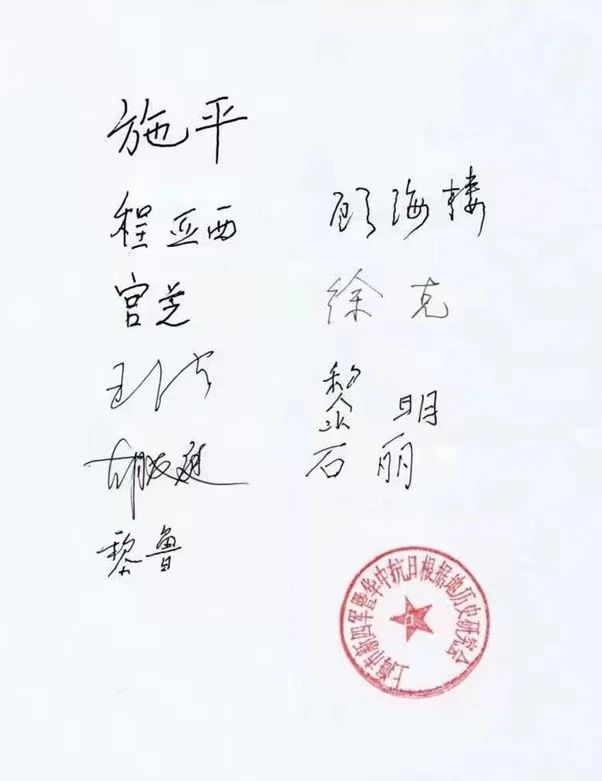 施平
程亚西 顾海楼
宫芝 徐克
黎明
石丽
黎鲁
上海市新四军暨华中抗日根据地历史研究会